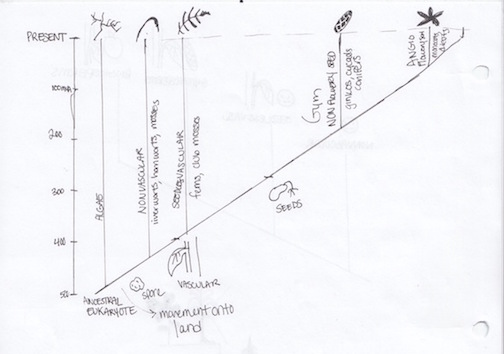 PRESENT
100mya
200
300
400
500
ALGAE
NONVASCULAR
liverworts, hornworts, mosses
SEEDLESS VASCULAR
ferns, club mosses
Gym
NON FLOWERY SEED
ginkos, cycads
conifers
ANGIO
SEEDS
VASCULAR
spore
ANCESTRAL
EUKARYOTE
→ movement onto
land